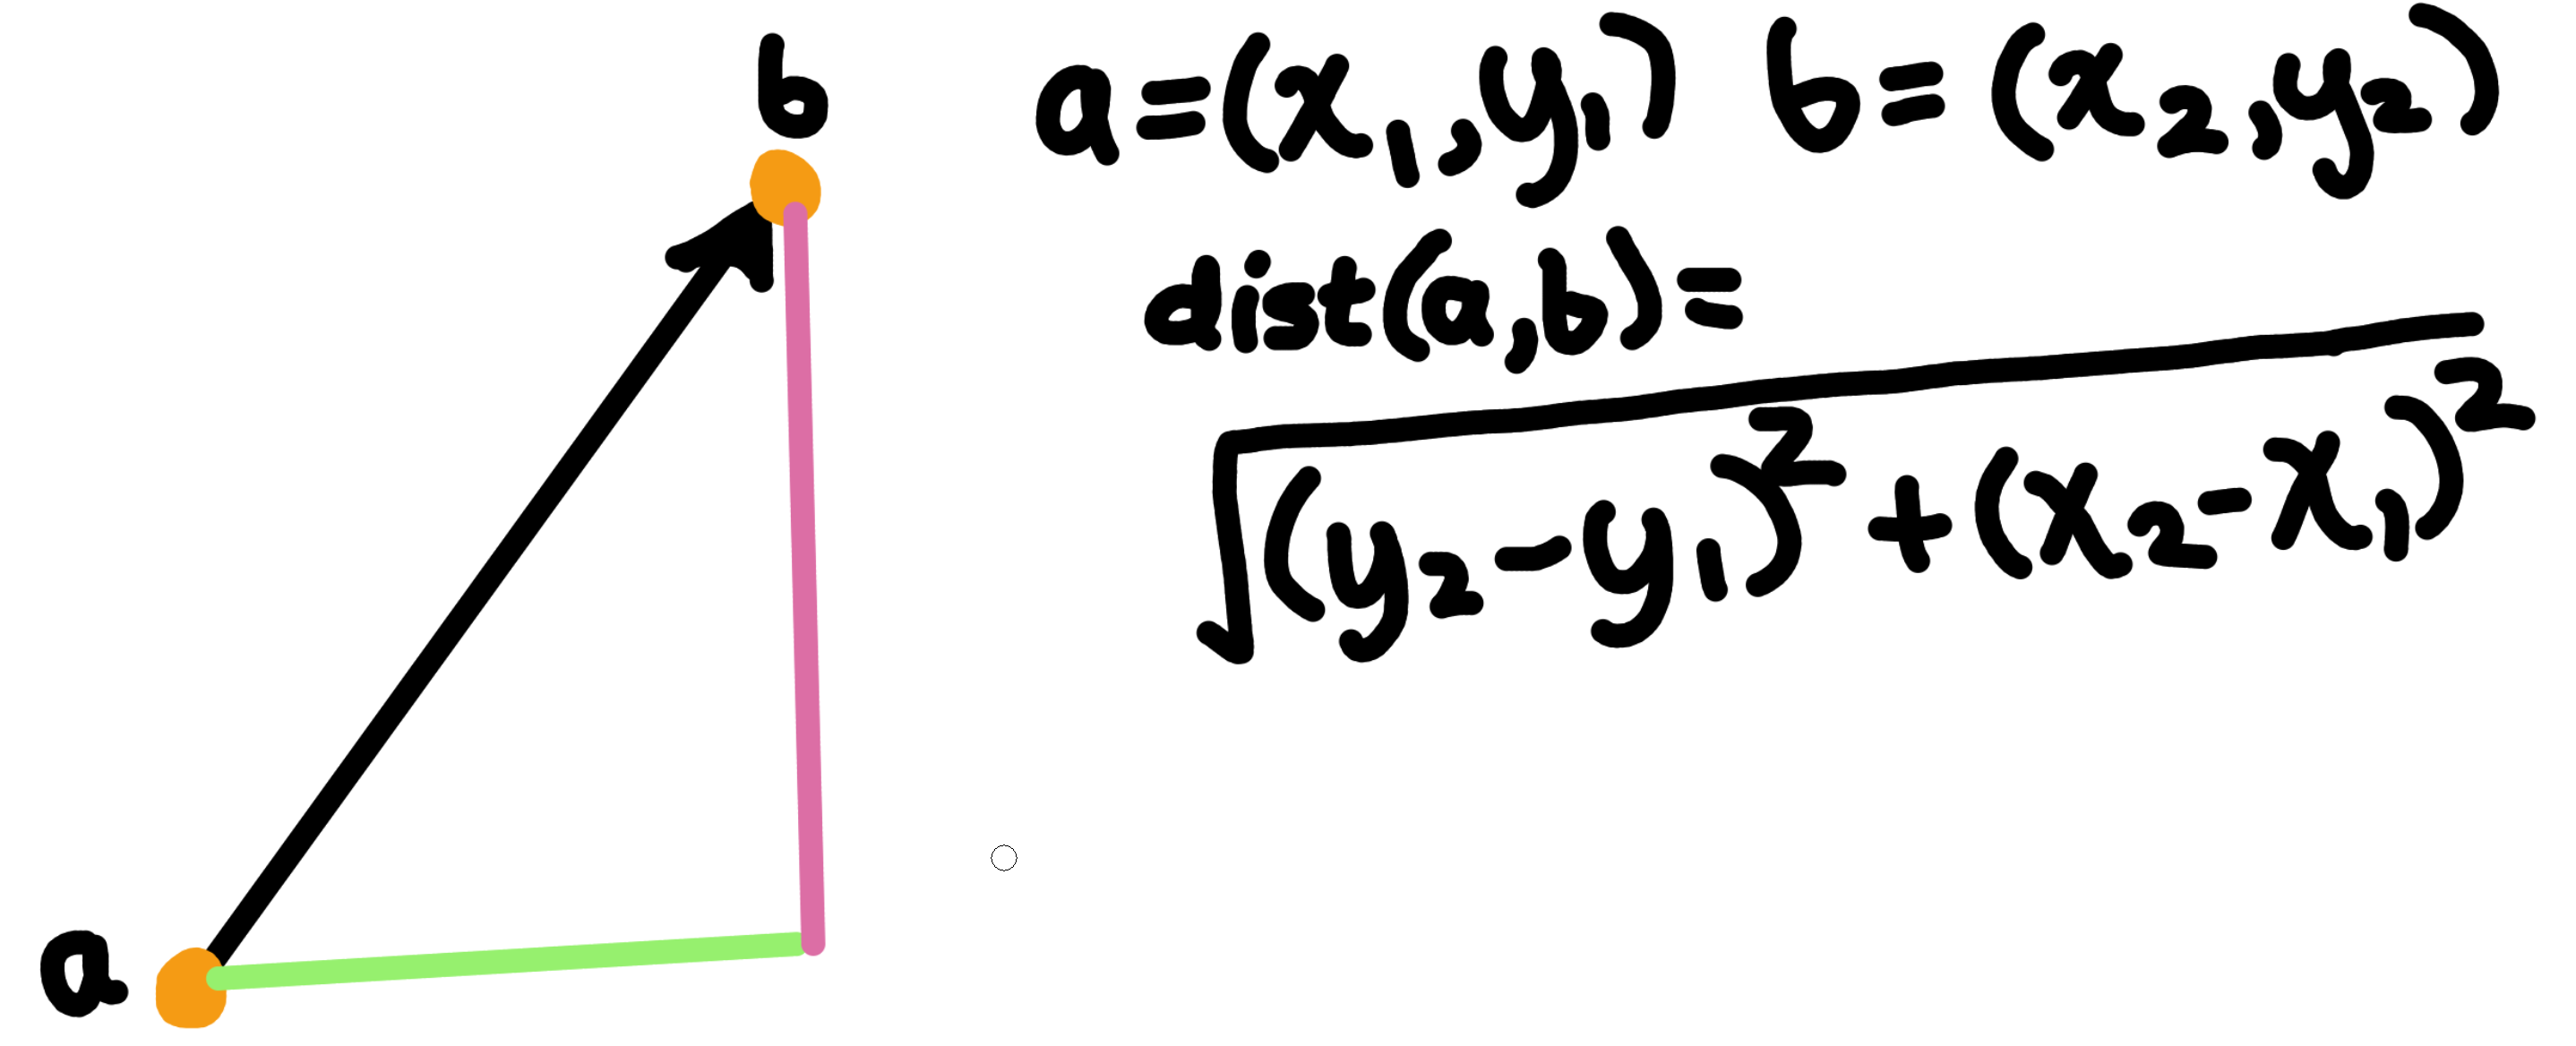 b
a=(x₁,y₁) b=(x₂,y₂)
dist(a,b)=
√(y₂-y₁)²+(x₂-x₁)²
a